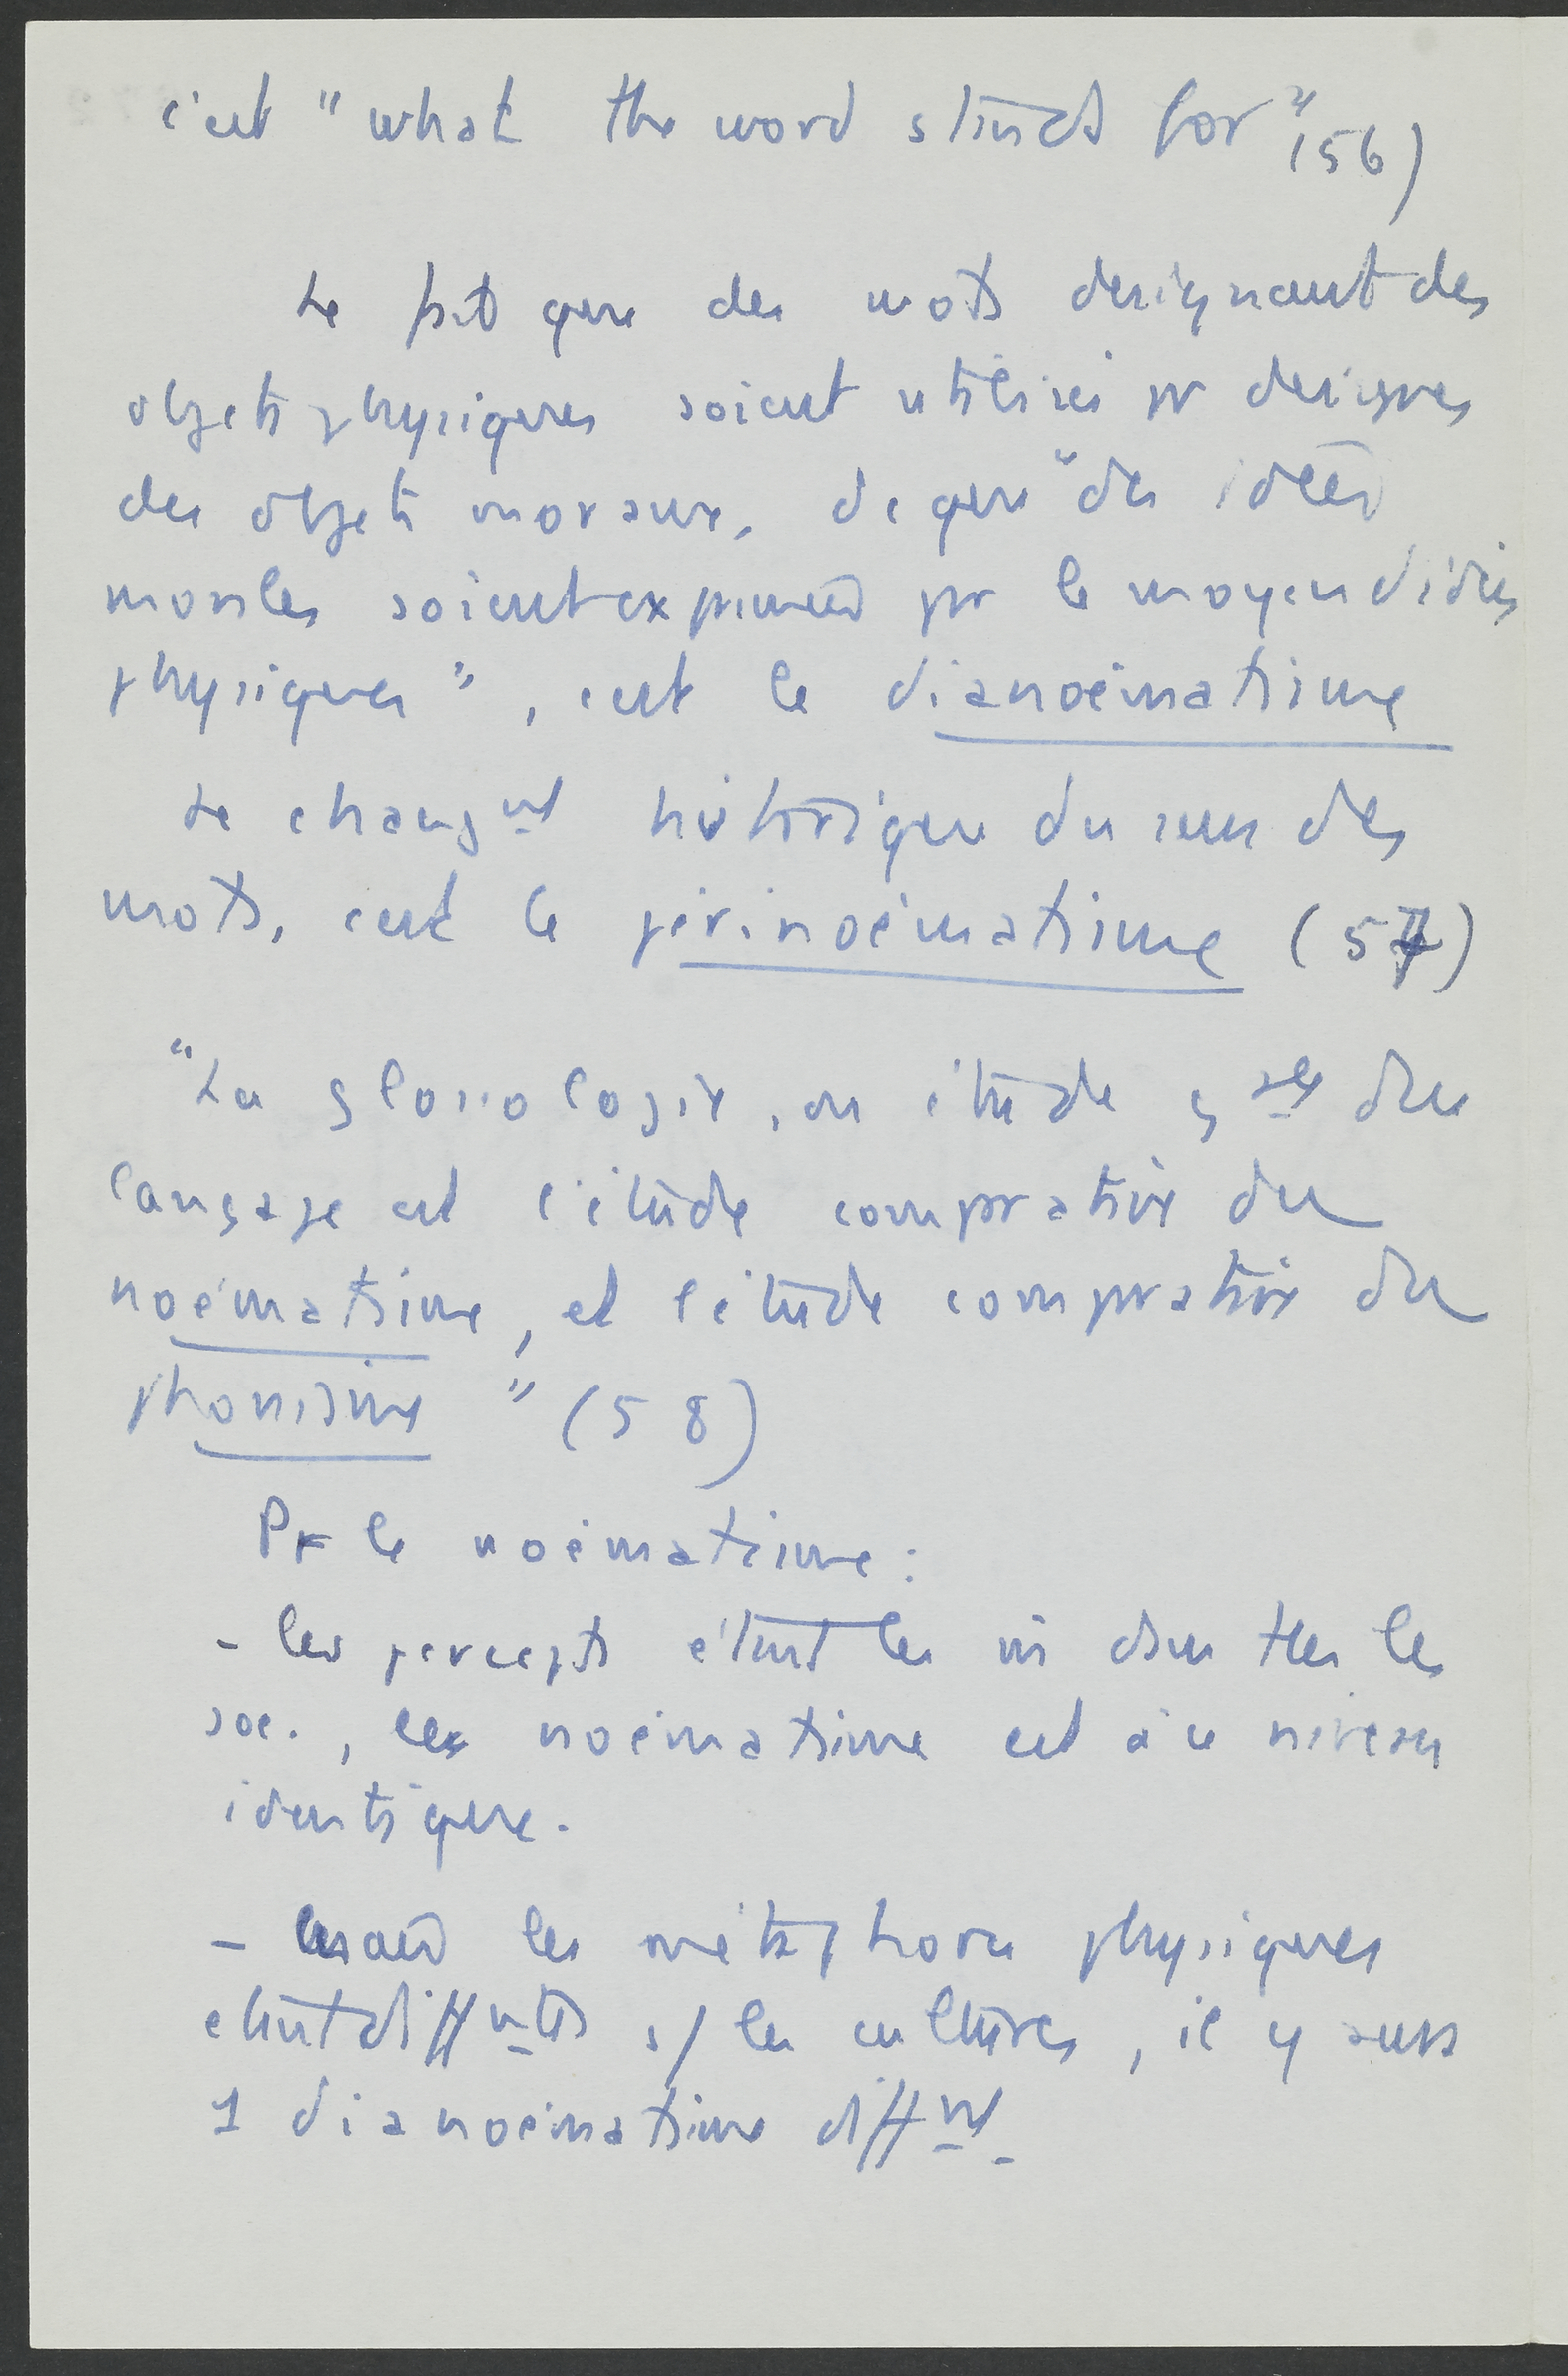 c'est "what the word stands for" (56)
Le fait que des mots désignant des
objets physiques soient utilisés pr désigner
des objets moraux, & que "des idées
morales soient exprimées par le moyen d'idées
physiques", c'est le dianoématisme
Le changnt historique du sens des
mots, c'est le périnoématisme (57)
"La glossologie, ou étude gale du
langage est l'étude comparative du
noématisme, et l'étude comparative du
phonisme" (58)
Pr le noématisme :
- les percepts étant les mm dans ttes les
soc., le noématisme est à ce niveau
identique.
- les métaphores physiques
étant difffntes s/ les cultures, il y aura
1 dianoématisme diffnt.